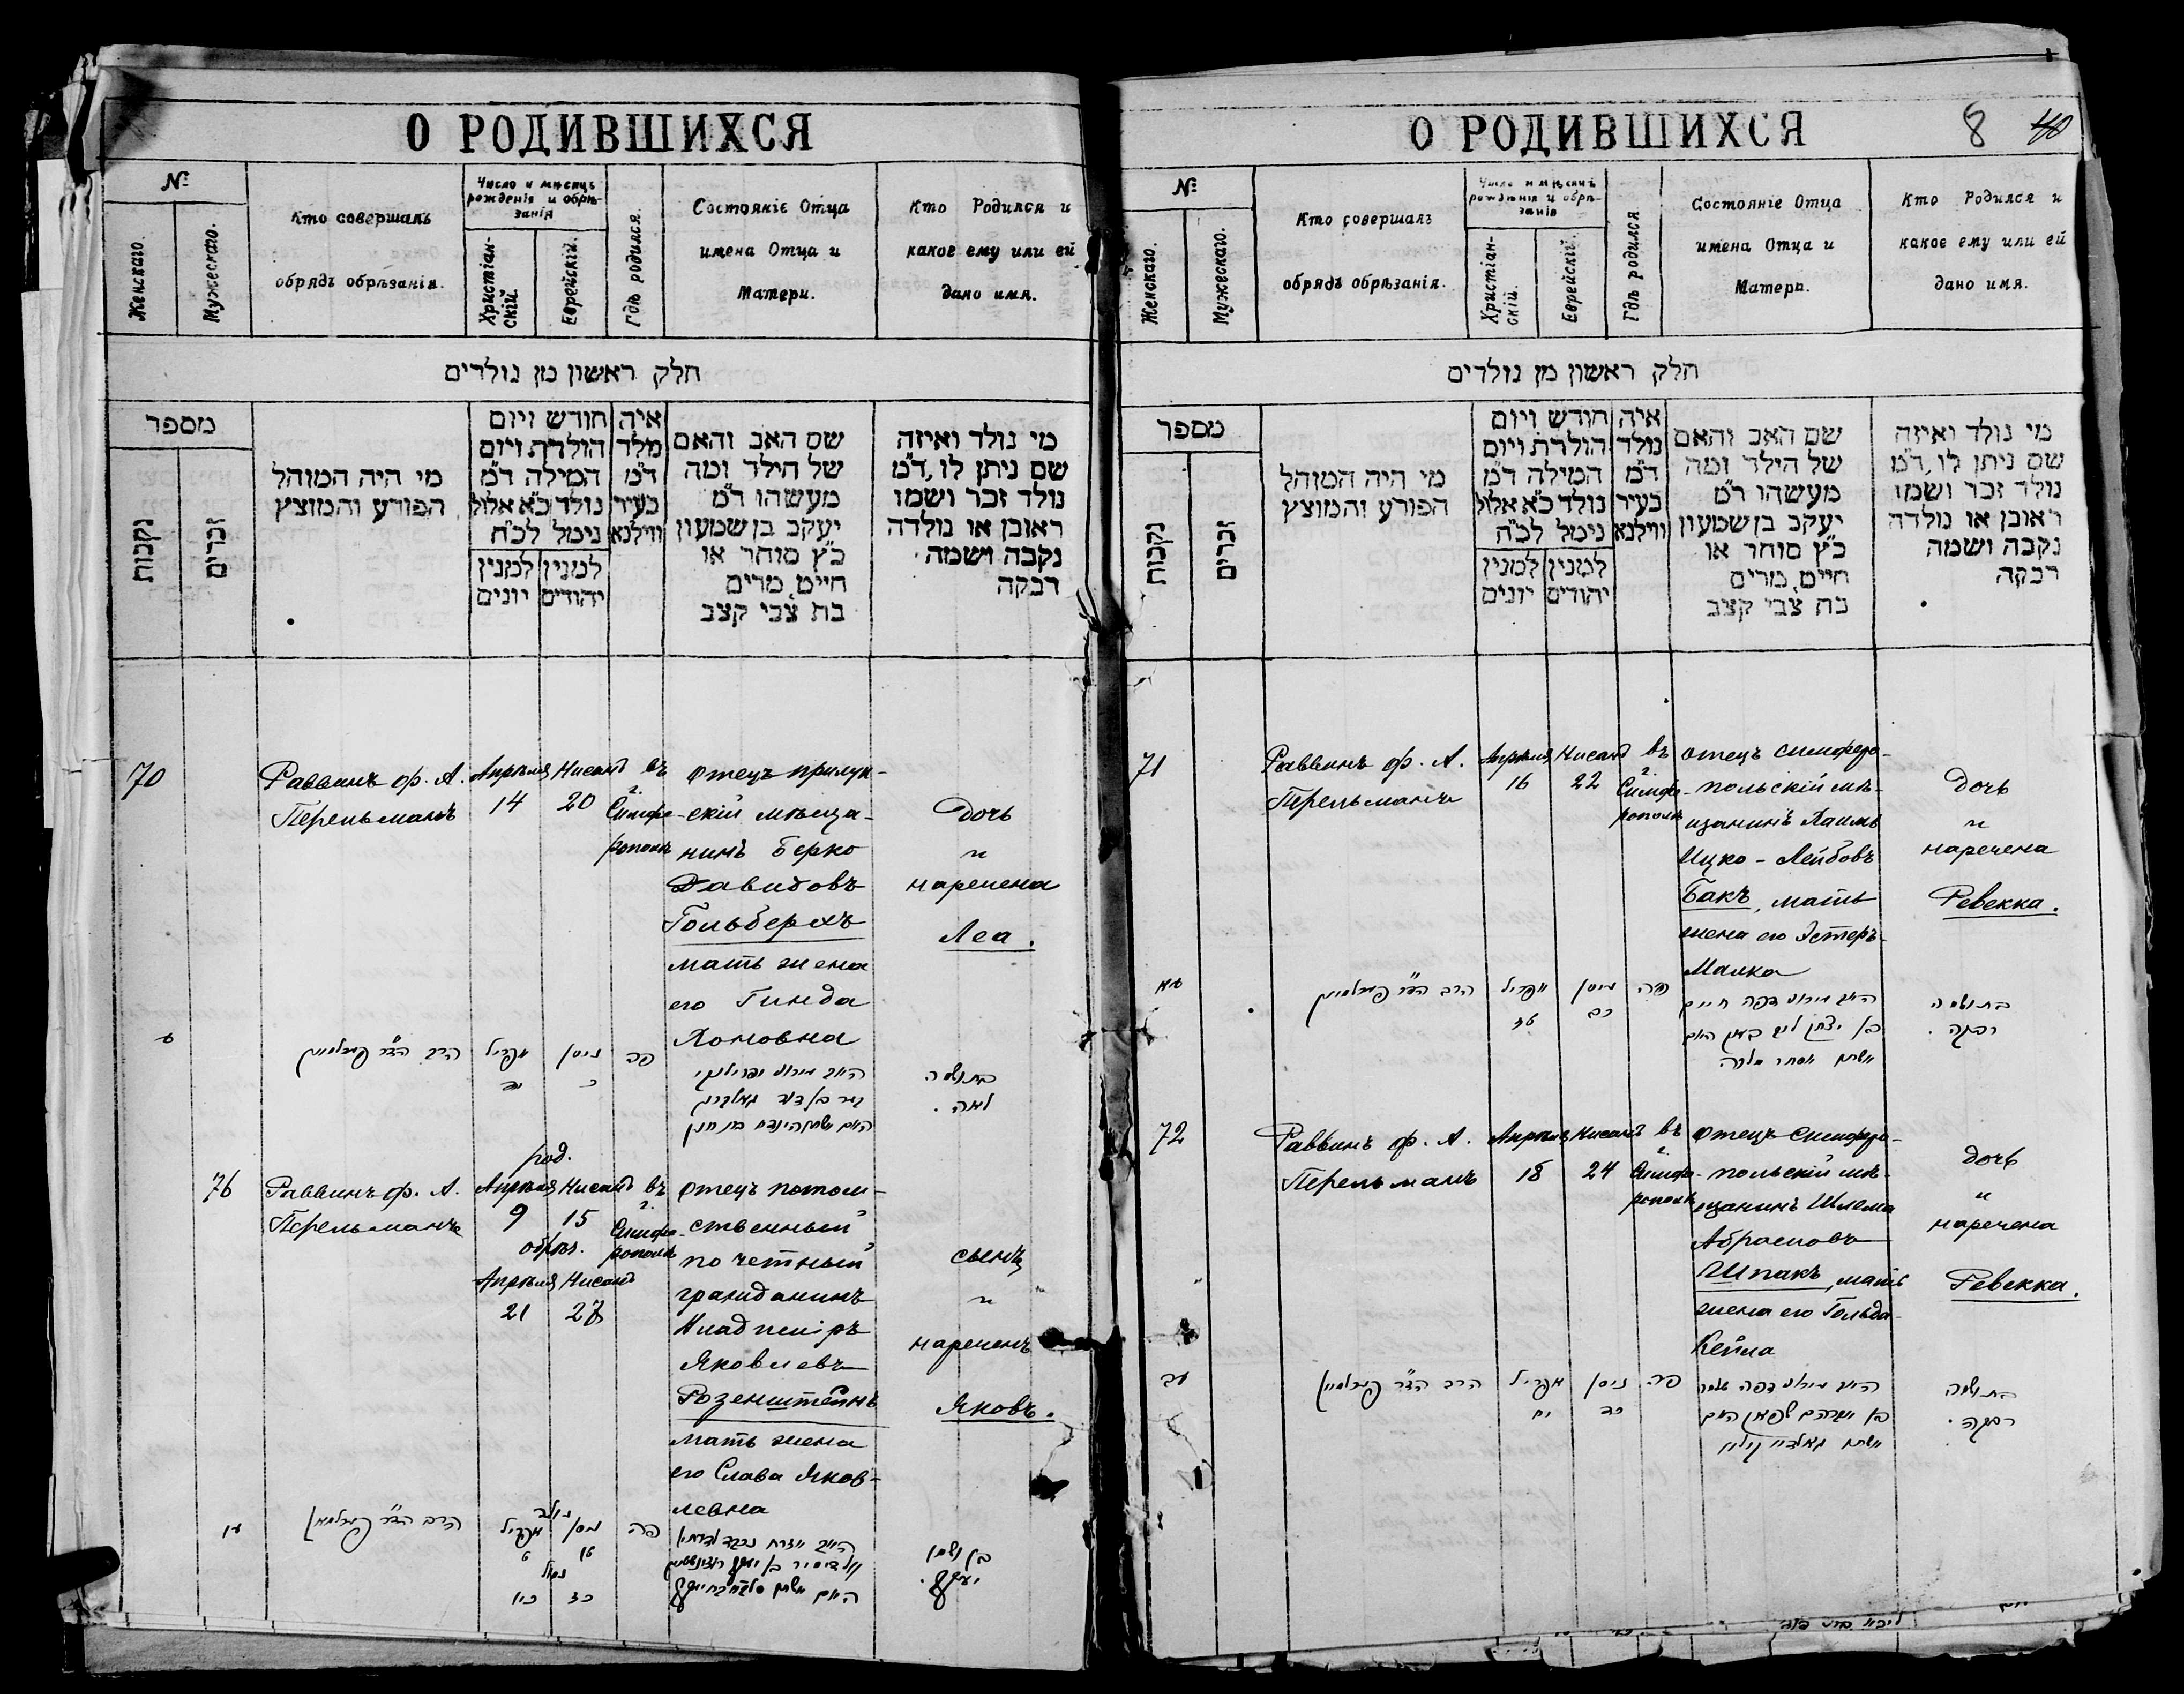 О РОДИВШИХСЯ
№
Женскаго.
Мужескаго.
Кто совершалъ
обрядъ обрѣзанія.
Число и мѣсяцъ
рожденія и обрѣ-
занія
Христіан-
скій.
Еврейскій.
Гдѣ родился.
Состояніе Отца
имена Отца и
Матери.
Кто Родился и
какое ему или ей
дано имя.
חלק ראשון מן נולדים
מספר
נקבות
זכרים
מי היה המוהל
הפורע והמוצץ
חודש ויום
הולדת ויום
המילה ד״מ
נולד כ״א אלול
נימל לכ״ח
למנין יהודים
למנין יונים
איה
נולד
ד״מ
בעיר
ווילנא
שם האב והאם
של הילד ומה
מעשהו ד״מ
יעקב בן שמעון
כ״ץ סוחר או
חייט, מרים
בת צבי קצב
מי נולד ואיזה
שם ניתן לו, ד״מ
נולד זכר ושמו
ראובן או נולדה
נקבה ושמה
רבקה
70
Раввинъ ф. А.
Перельманъ
Апрѣля
14
Нисанъ
20
въ
г.
Симфе-
рополѣ
отецъ прилук-
скій мѣща-
нинъ Берко
Давидовъ
Гольберхъ
мать жена
его Гинда
Хоновна
Дочь
и
наречена
Леа.
הרב הד״ר פערלמאן
אפריל
ניסן
כ
פה
76
Раввинъ ф. А.
Перельманъ
род.
Апрѣля Нисанъ
9 15
обрѣз.
Апрѣля Нисанъ
21 27
въ
г.
Симфе-
рополѣ
отецъ потом-
ственный
почетный
гражданинъ
Владиміръ
Яковлевъ
Розенштейнъ
мать жена
его Слава Яков-
левна
сынъ
и
нареченъ
Яковъ.
הרב הד״ר פערלמאן
נולד
אפריל
ניסן
פה
בן ושמו
יעקב.
О РОДИВШИХСЯ
8
№
Женскаго.
Мужескаго.
Кто совершалъ
обрядъ обрѣзанія.
Число и мѣсяцъ
рожденія и обрѣ-
занія
Христіан-
скій.
Еврейскій.
Гдѣ родился
Состояніе Отца
имена Отца и
Матери.
Кто Родился и
какое ему или ей
дано имя.
חלק ראשון מן נולדים
מספר
נקבות
זכרים
מי היה המוהל
הפורע והמוצץ
חודש ויום
הולדת ויום
המילה ד״מ
נולד כ״א אלול
נימל לכ״ח
למנין יהודים
למנין יונים
איה
נולד
ד״מ
בעיר
ווילנא
שם האב והאם
של הילד ומה
מעשהו ד״מ
יעקב בן שמעון
כ״ץ סוחר או
חייט, מרים
בת צבי קצב
מי נולד ואיזה
שם ניתן לו, ד״מ
נולד זכר ושמו
ראובן או נולדה
נקבה ושמה
רבקה
71
Раввинъ ф. А.
Перельманъ
Апрѣля
16
Нисанъ
22
въ
г.
Симфе-
рополѣ
отецъ симферо-
польскій мѣ-
щанинъ Хаимъ
Ицко-Лейбовъ
Бакъ, мать
жена его Эстеръ-
Малка
Дочь
и
наречена
Ревекка.
הרב הד״ר פערלמאן
אפריל
ניסן
כב
פה
רבקה.
72
Раввинъ ф. А.
Перельманъ
Апрѣля
18
Нисанъ
24
въ
г.
Симфе-
рополѣ
отецъ симферо-
польскій мѣ-
щанинъ Шлема
Абрамовъ
Шпакъ, мать
жена его Гольда-
Кейла
дочь
и
наречена
Ревекка.
עב
הרב הד״ר פערלמאן
אפריל
יח
ניסן
כד
פה
רבקה.